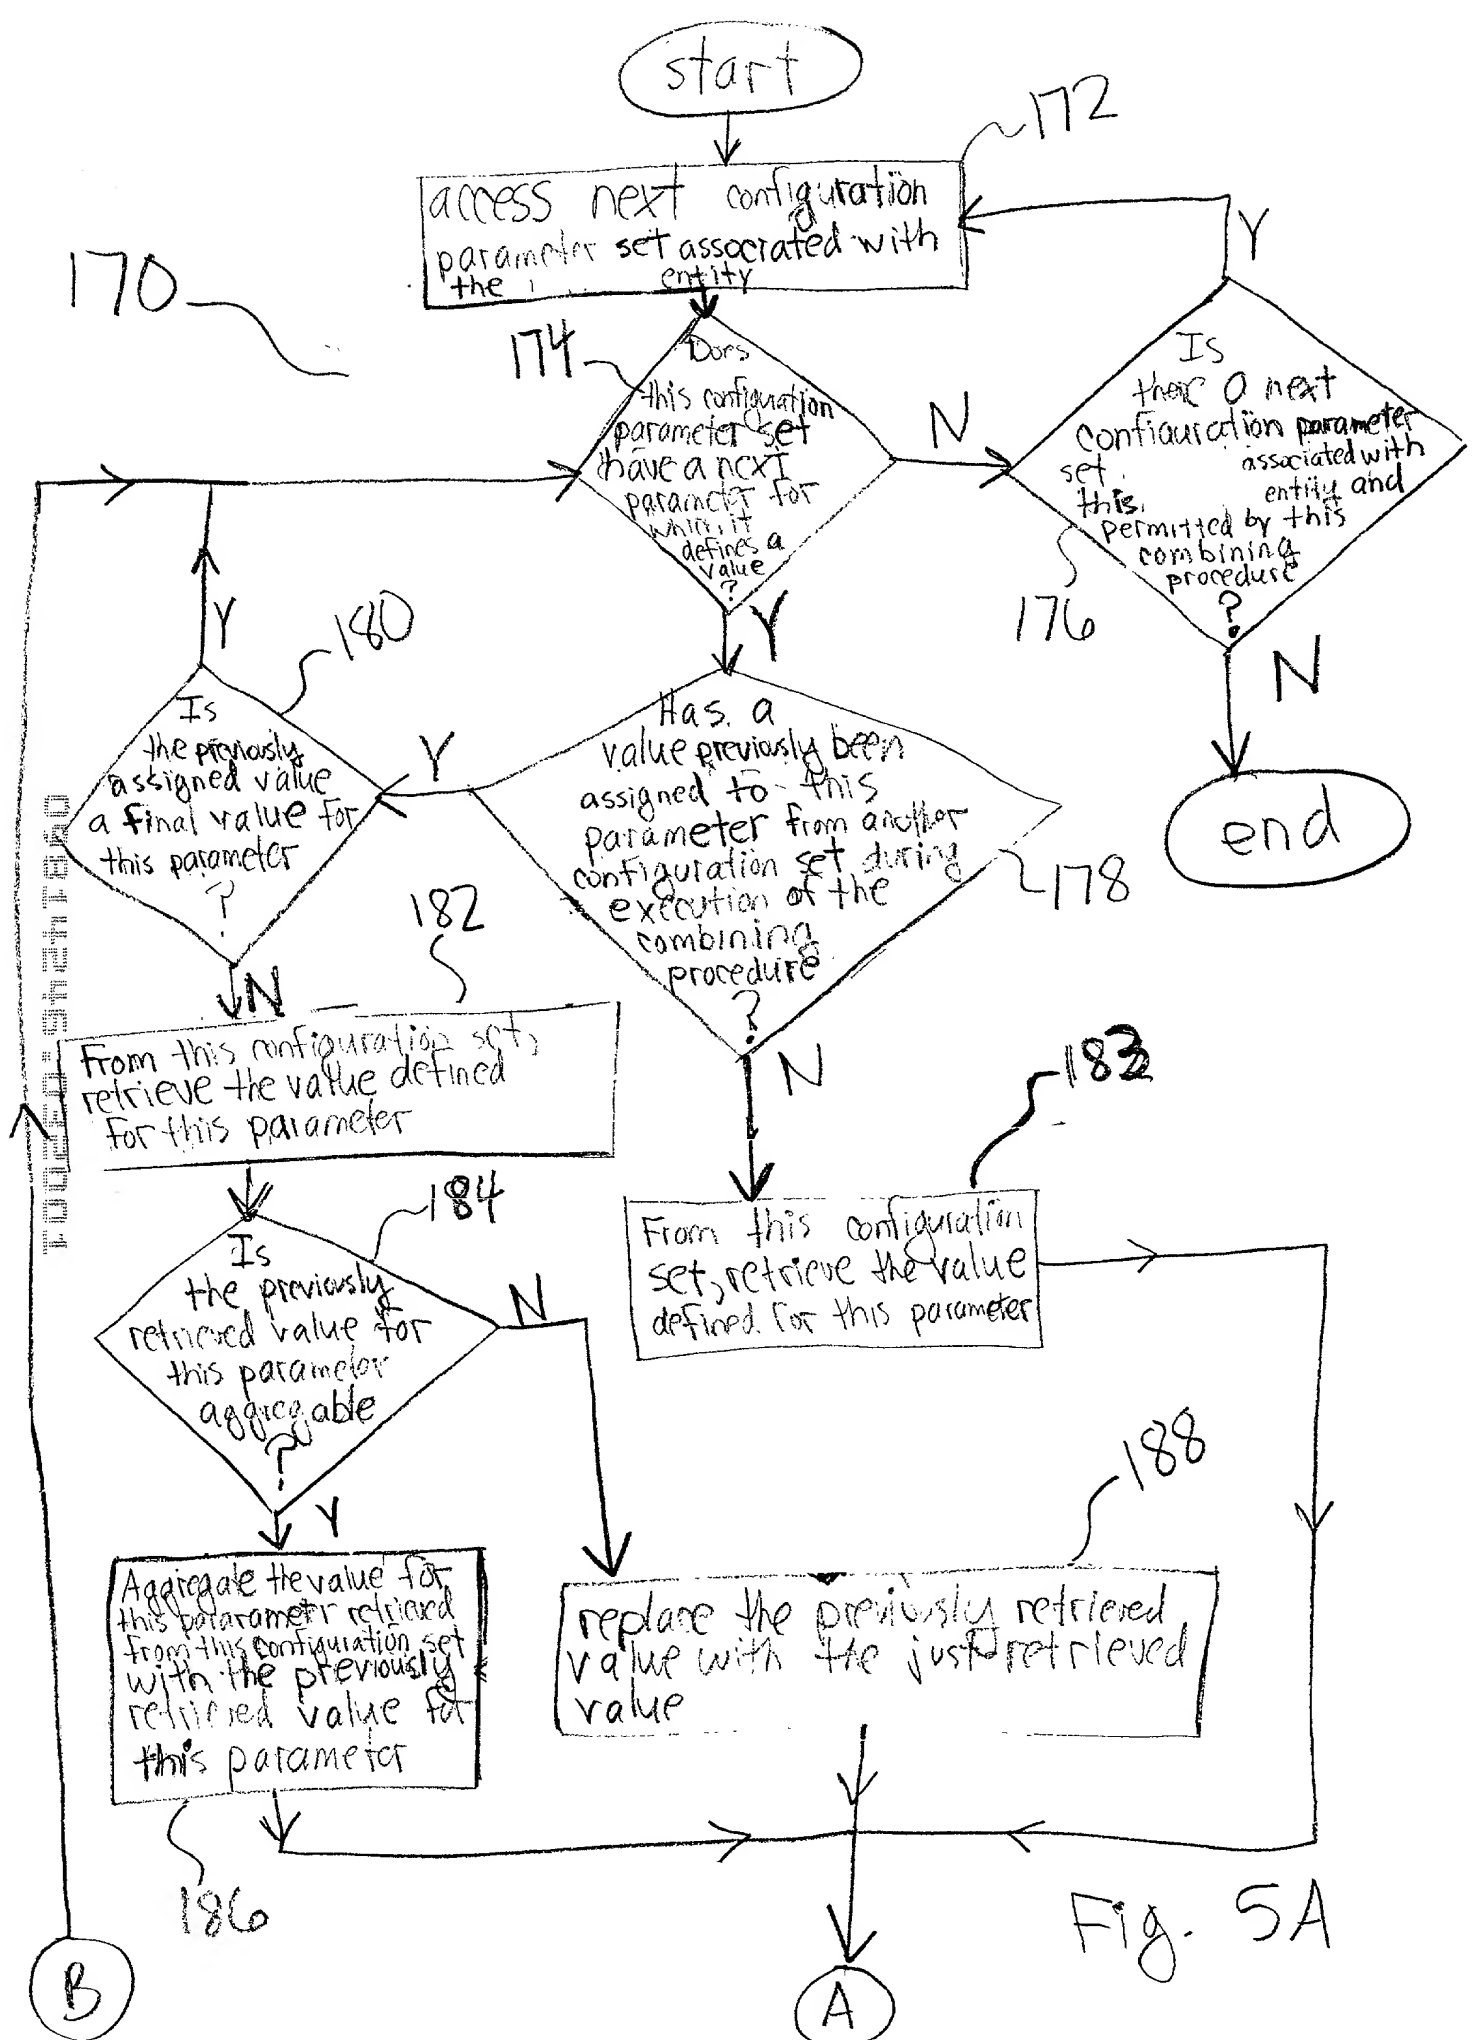 start
172
access next configuration
parameter set associated with
the entity
170
174
Does
this configuration
parameter set
have a next
parameter for
which it
defines a
value
?
N
Y
Is
there a next
configuration parameter
set associated with
this entity and
permitted by this
combining
procedure
?
176
Y
N
end
Has a
value previously been
assigned to this
parameter from another
configuration set during
execution of the
combining
procedure
?
178
Y
N
180
Is
the previously
assigned value
a final value for
this parameter
?
Y
N
182
From this configuration set,
retrieve the value defined
for this parameter
183
From this configuration
set, retrieve the value
defined for this parameter
184
Is
the previously
retrieved value for
this parameter
aggregable
?
N
Y
Aggregate the value for
this pararameter retrieved
from this configuration set
with the previously
retrieved value for
this parameter
186
188
replace the previously retrieved
value with the just retrieved
value
B
A
Fig. 5A